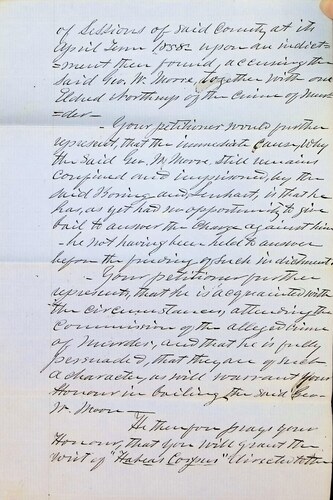 of Sessions of said County, at its
April Term 1858 upon an indict-
=ment then found, accusing the
said Geo. W. Moore, together with one
Northrup of the crime of mur=
=der—
- Your petitioner would further
represent, that the immediate cause, why
the said Geo. W. Moore, still remains
confined and imprisoned, by the
said and , is that he
has, as yet had no opportunity to give
bail to answer the charge against him
- he not having been held to answer
before the finding of such indictment.
- Your petitioner further
represents, that he is acquainted with
the circumstances, attending the
commission of the alleged crime
of murder, and that he is fully
persuaded, that they are of such
a character, as will warrant your
Honour in bailing the said Geo
W. Moore—
He therefore prays your
Honour, that you will grant the
writ of "Habeas Corpus" directed to the